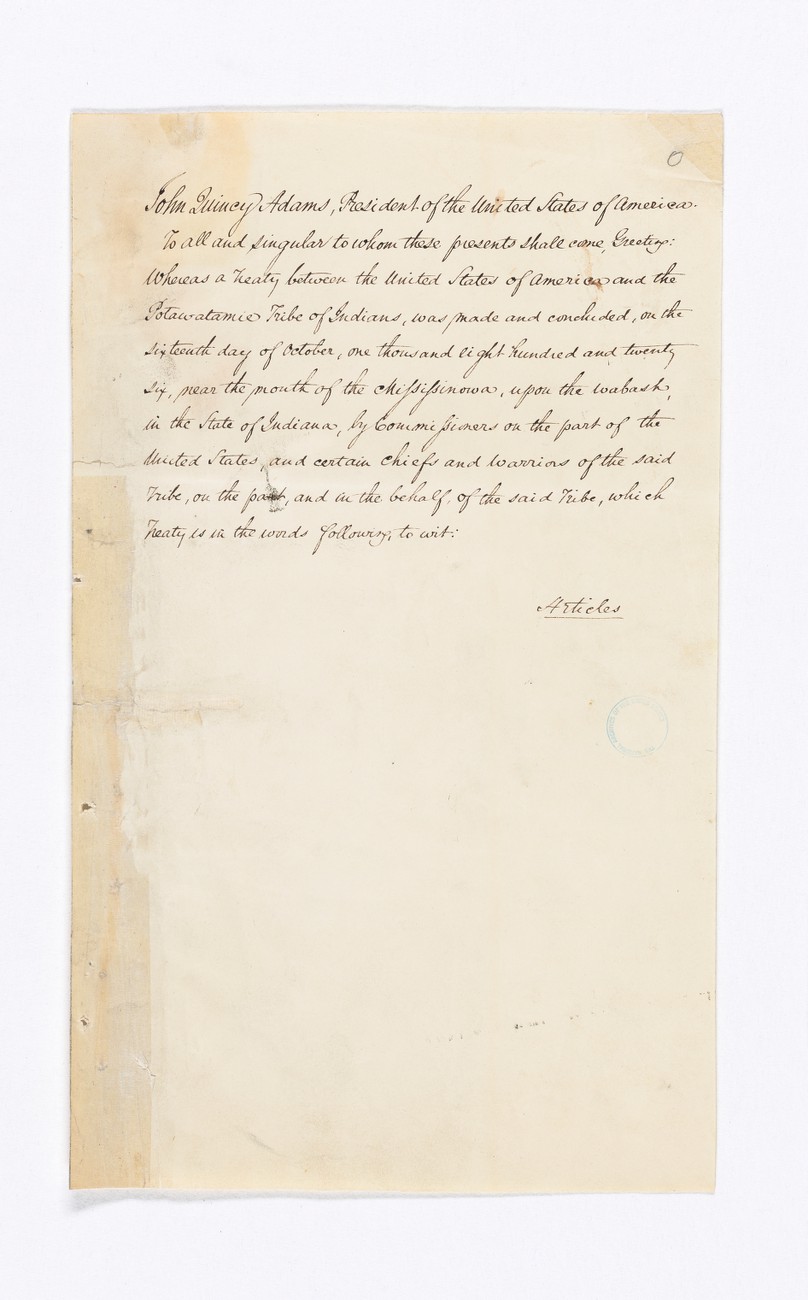 0
John Quincy Adams, President of the United States of America.
To all and singular to whom these presents shall come, Greeting:
Whereas a Treaty between the United States of America and the
Potawatamie Tribe of Indians, was made and concluded, on the
sixteenth day of October, one thousand eight hundred and twenty
six, near the mouth of the Mississinowa, upon the wabash,
in the State of Indiana, by Commissioners on the part of the
United States, and certain Chiefs and Warriors of the said
Tribe, on the part, and in the behalf, of the said Tribe, which
Treaty is in the words following, to wit:
Articles